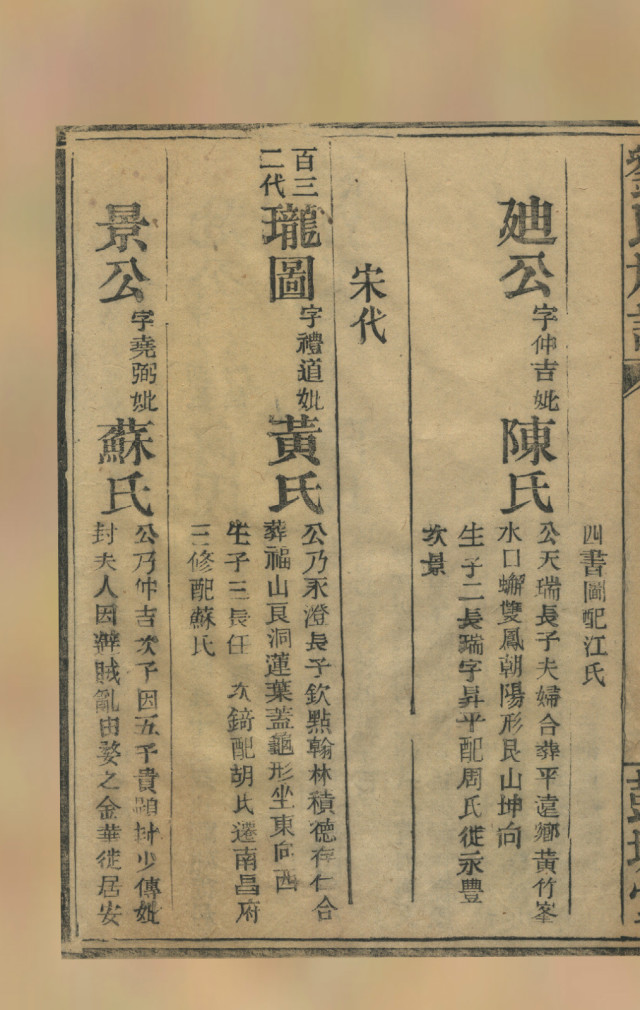 四書圖配江氏
廸公字仲吉妣陳氏
公天瑞長子夫婦合葬平遠鄉黃竹峯
水口蠏雙鳳朝陽形艮山坤向
生子二長瑞字昇平配周氏徙永豐
次景
宋代
百三
二代
瓏圖字禮道妣黃氏
公乃永澄長子欽點翰林積德存仁合
葬福山艮洞蓮葉蓋龜形坐東向西
生子三長任次錡配胡氏遷南昌府
三修配蘇氏
景公字堯弼妣蘇氏
公乃仲吉次子因五子貴顯封少傳妣
封夫人因辟賊亂由婺之金華徙居安